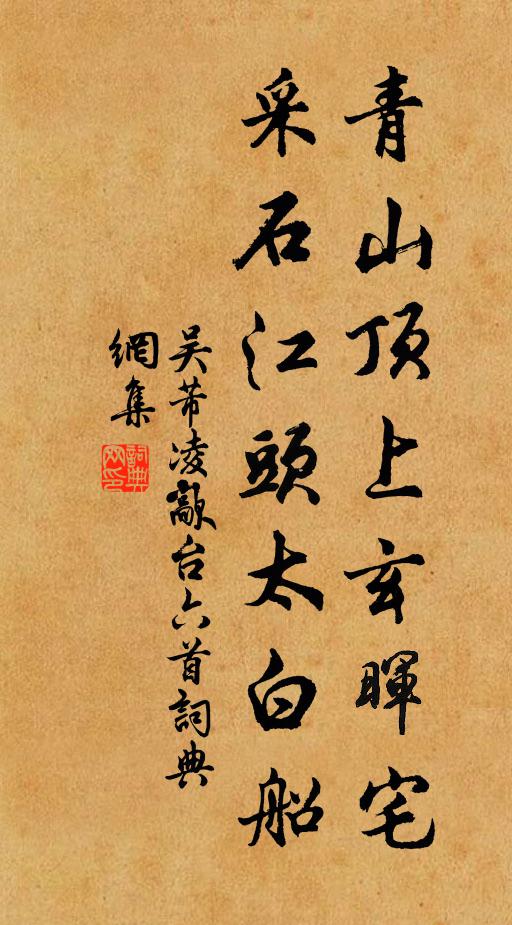 青山顶上玄暉宅
采石江頭太白船
吴芾凌歊台六首詞典
網集
詞典
网印